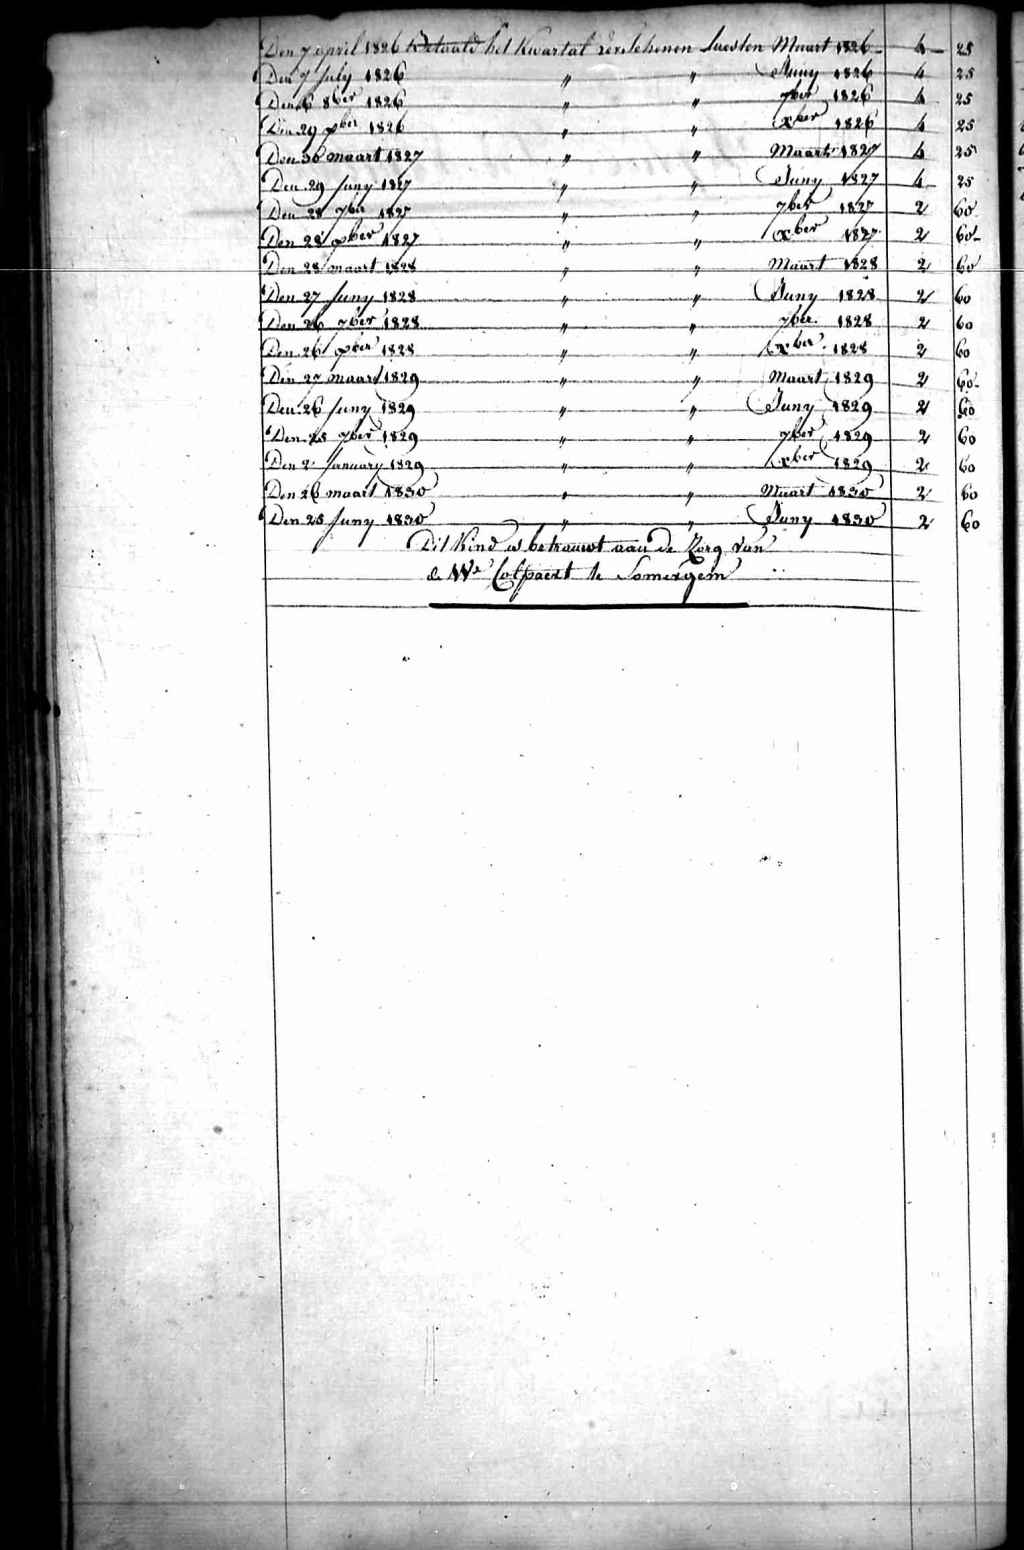 Den 7 april 1826 Betaald het Kwartal verschenen laesten Maart 1826 4 25
Den 7 July 1826 " " Juny 1826 4 25
Den 6 8ber 1826 " " 7ber 1826 4 25
Den 29 xber 1826 " " xber 1826 4 25
Den 30 maart 1827 " " Maart 1827 4 25
Den 29 Juny 1827 " " Juny 1827 4 25
Den 28 7ber 1827 " " 7ber 1827 2 60
Den 28 xber 1827 " " xber 1827 2 60
Den 28 maart 1828 " " Maart 1828 2 60
Den 27 Juny 1828 " " Juny 1828 2 60
Den 26 7ber 1828 " " 7ber 1828 2 60
Den 26 xber 1828 " " xber 1828 2 60
Den 27 maart 1829 " " Maart 1829 2 60
Den 26 Juny 1829 " " Juny 1829 2 60
Den 25 7ber 1829 " " 7ber 1829 2 60
Den 2 January 1829 " " xber 1829 2 60
Den 26 maart 1830 " " Maart 1830 2 60
Den 25 Juny 1830 " " Juny 1830 2 60
Dit Kind is betrauwt aan de Zorg van
de We Colpaert te Somergem